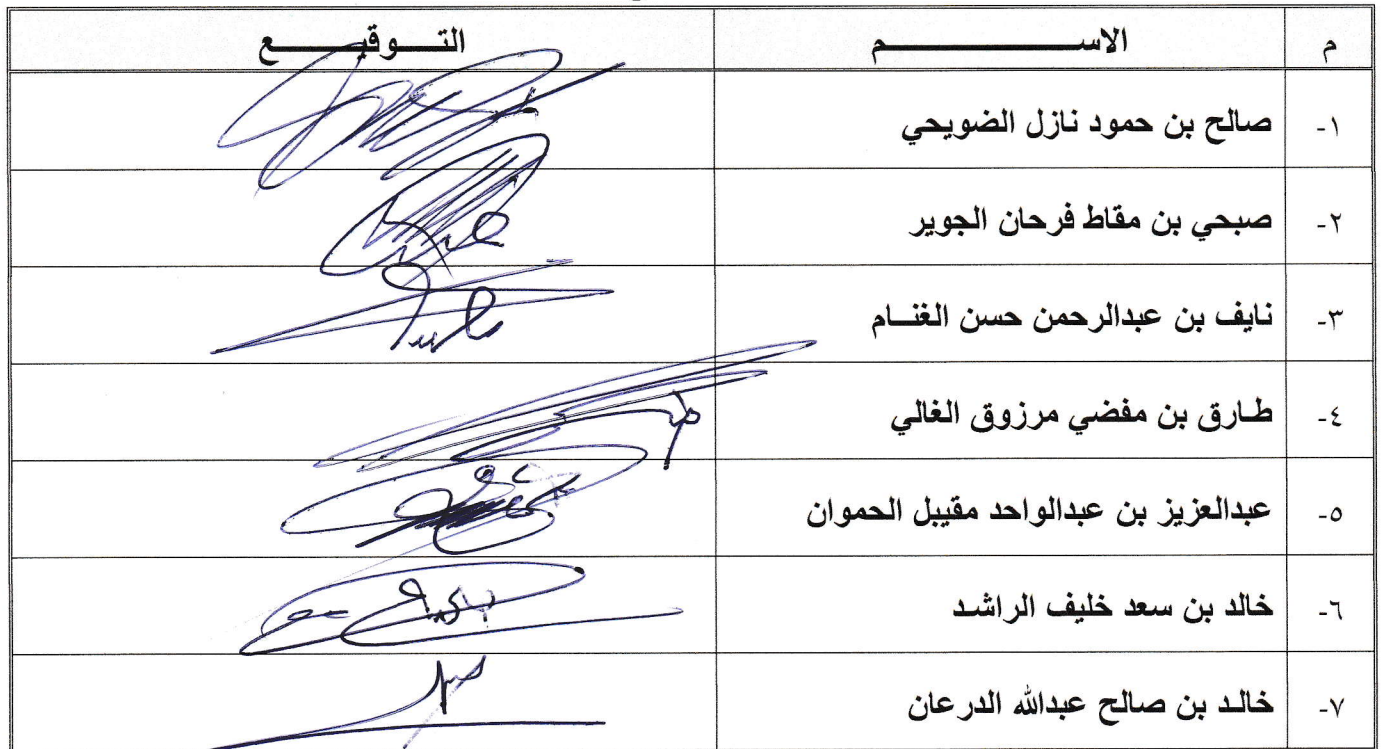 م الاســـــــــــــــــــم التــــوقيــــــــع
١- صالح بن حمود نازل الضويحي
٢- صبحي بن مقاط فرحان الجوير
٣- نايف بن عبدالرحمن حسن الغنــام
٤- طـارق بن مفضي مرزوق الغالي
٥- عبدالعزيز بن عبدالواحد مقيبل الحموان
٦- خالد بن سعد خليف الراشـد
٧- خالـد بن صالح عبدالله الدرعان